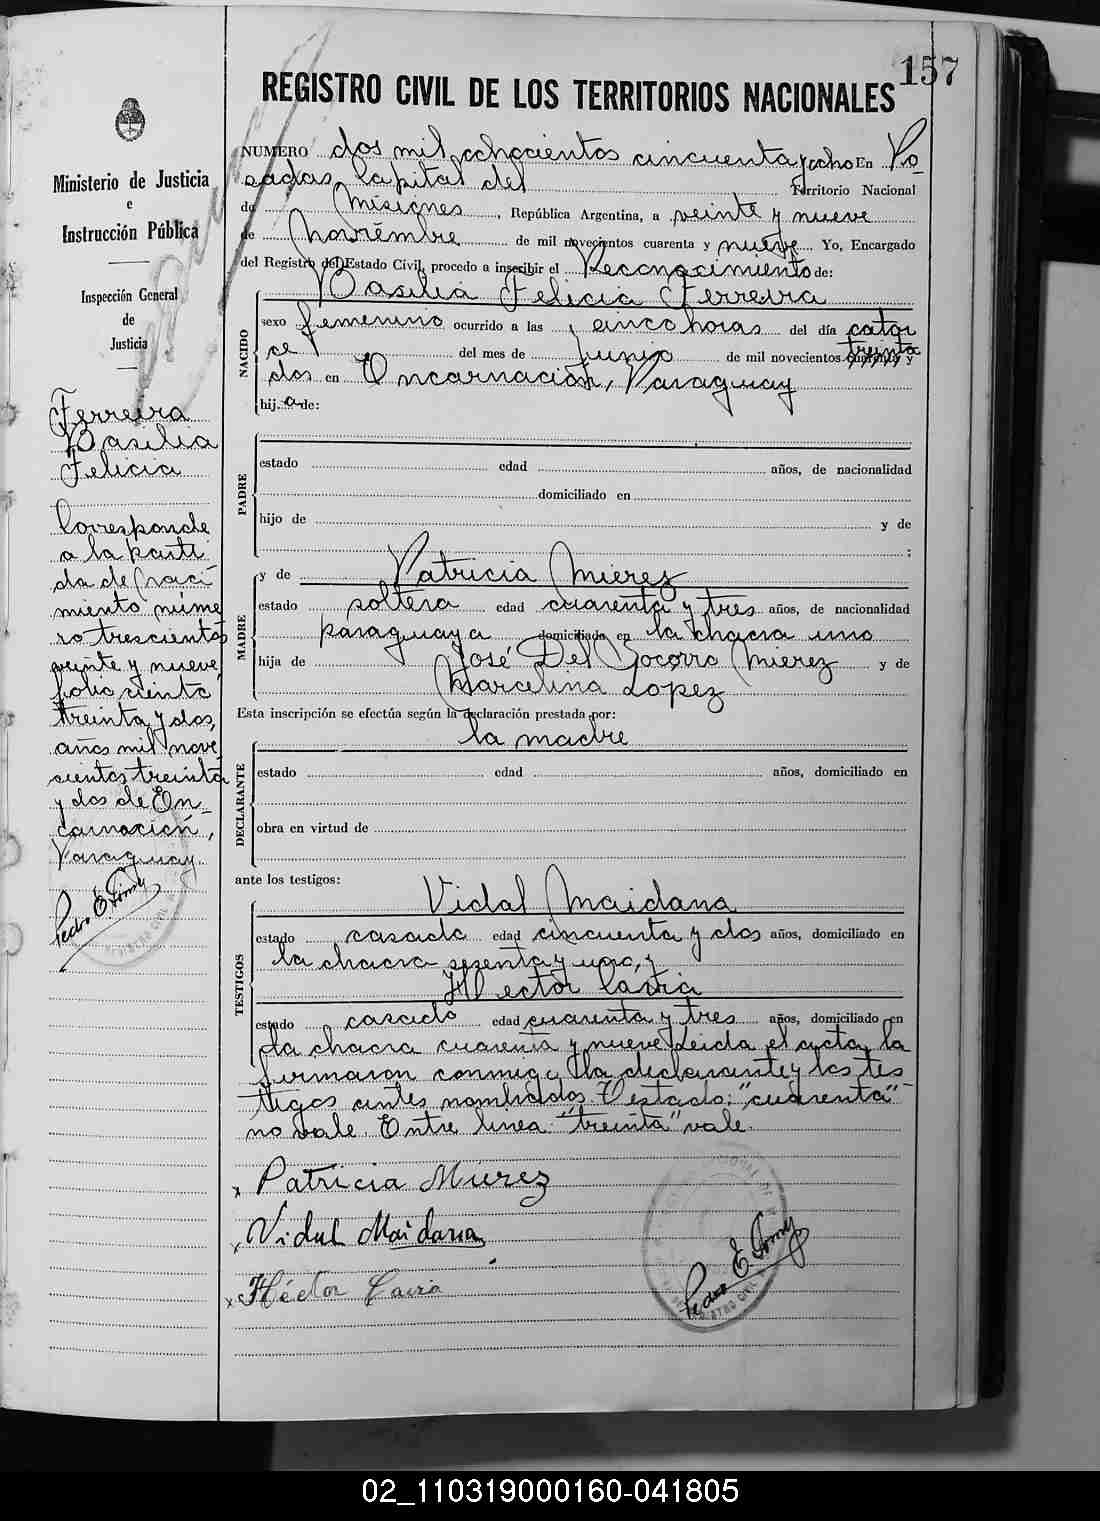 157
REGISTRO CIVIL DE LOS TERRITORIOS NACIONALES
Ministerio de Justicia
e
Instrucción Pública
Inspección General
de
Justicia
Ferreira
Basilia
Felicia
Corresponde
a la parti
da de naci
miento núme
ro trescientos
veinte y nueve
folio ciento
treinta y dos,
años mil nove
cientos treinta
y dos de En-
carnación,
Paraguay.
Pedro E.
NUMERO dos mil ochocientos cincuenta y ocho En Po-
sadas Capital del Territorio Nacional
de Misiones, República Argentina, a veinte y nueve
de Noviembre de mil novecientos cuarenta y nueve Yo, Encargado
del Registro del Estado Civil, procedo a inscribir el Reconocimiento de:
Basilia Felicia Ferreira
NACIDO
sexo femenino ocurrido a las cinco horas del día cator
ce del mes de Junio de mil novecientos cuarenta y treinta
dos en Encarnación, Paraguay
hij.a de:
PADRE
estado edad años, de nacionalidad
domiciliado en
hijo de y de
;
MADRE
y de Patricia Mierez
estado soltera edad cuarenta y tres años, de nacionalidad
paraguaya domiciliada en la chacra uno
hija de José Del Socorro Mierez y de
Marcelina Lopez
Esta inscripción se efectúa según la declaración prestada por:
la madre
DECLARANTE
estado edad años, domiciliado en
obra en virtud de
ante los testigos:
TESTIGOS
Vidal Maidana
estado casado edad cincuenta y dos años, domiciliado en
la chacra sesenta y uno, y
Hector Cavia
estado casado edad cuarenta y tres años, domiciliado en
la chacra cuarenta y nueve Leida el acta, la
firmaron conmigo, la declarante y los tes-
tigos antes nombrados. Testado: "cuarenta"
no vale Entre linea: "treinta" vale.
x Patricia Murez
x Vidal Maidana
x Héctor Cavia
Pedro E.
REGISTRO CIVIL
02_110319000160-041805